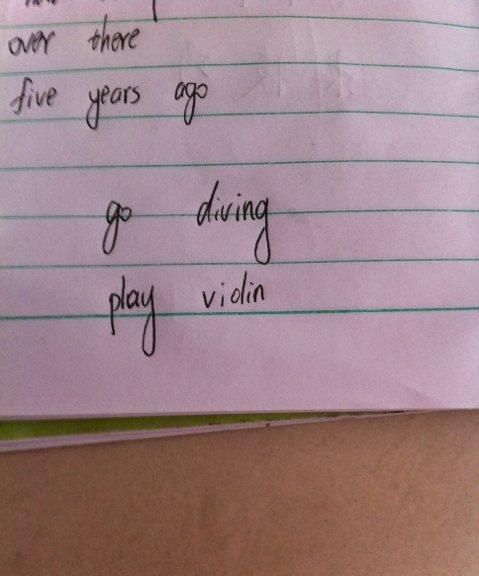 over there
five years ago
go diving
play violin